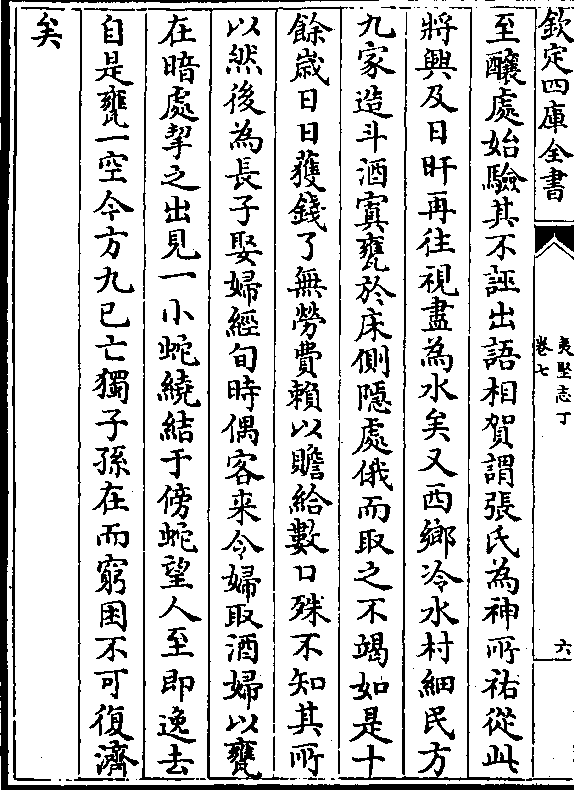 欽定四庫全書
夷堅志丁
卷七
六
至釀處始驗其不誣出語相賀謂張氏為神所祐從此
將興及日旰再往視盡為水矣又西鄉冷水村細民方
九家造斗酒寘甕於床側隱處俄而取之不竭如是十
餘歳日日獲錢了無勞費賴以贍給數口殊不知其所
以然後為長子娶婦經旬時偶客来令婦取酒婦以甕
在暗處挈之出見一小蛇繞結于傍蛇望人至即逸去
自是甕一空今方九已亡獨子孫在而窮困不可復濟
矣